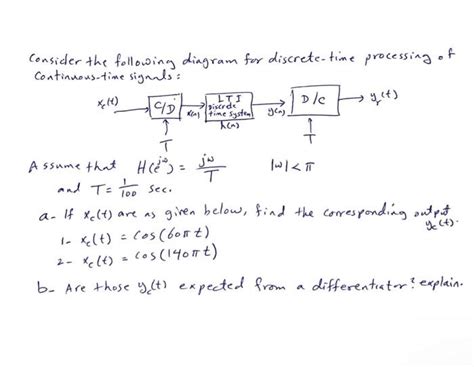 Consider the following diagram for discrete-time processing of
Continuous-time signals:
x_c(t) C/D x(n) LTI discrete time system h(n) y(n) D/C y_r(t)
T T
Assume that H(e^{jω}) = jω/T |ω| < π
and T = 1/100 sec.
a- If x_c(t) are as given below, find the corresponding output y_c(t).
1- x_c(t) = cos(60πt)
2- x_c(t) = cos(140πt)
b- Are those y_c(t) expected from a differentiator? explain.